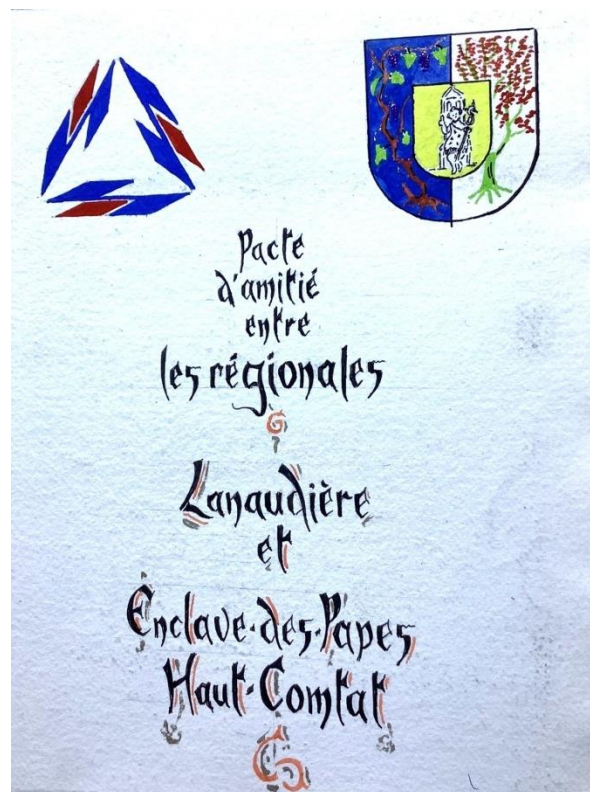 Pacte
d'amitié
entre
les régionales
Lanaudière
et
Enclave-des-Papes
Haut-Comtat